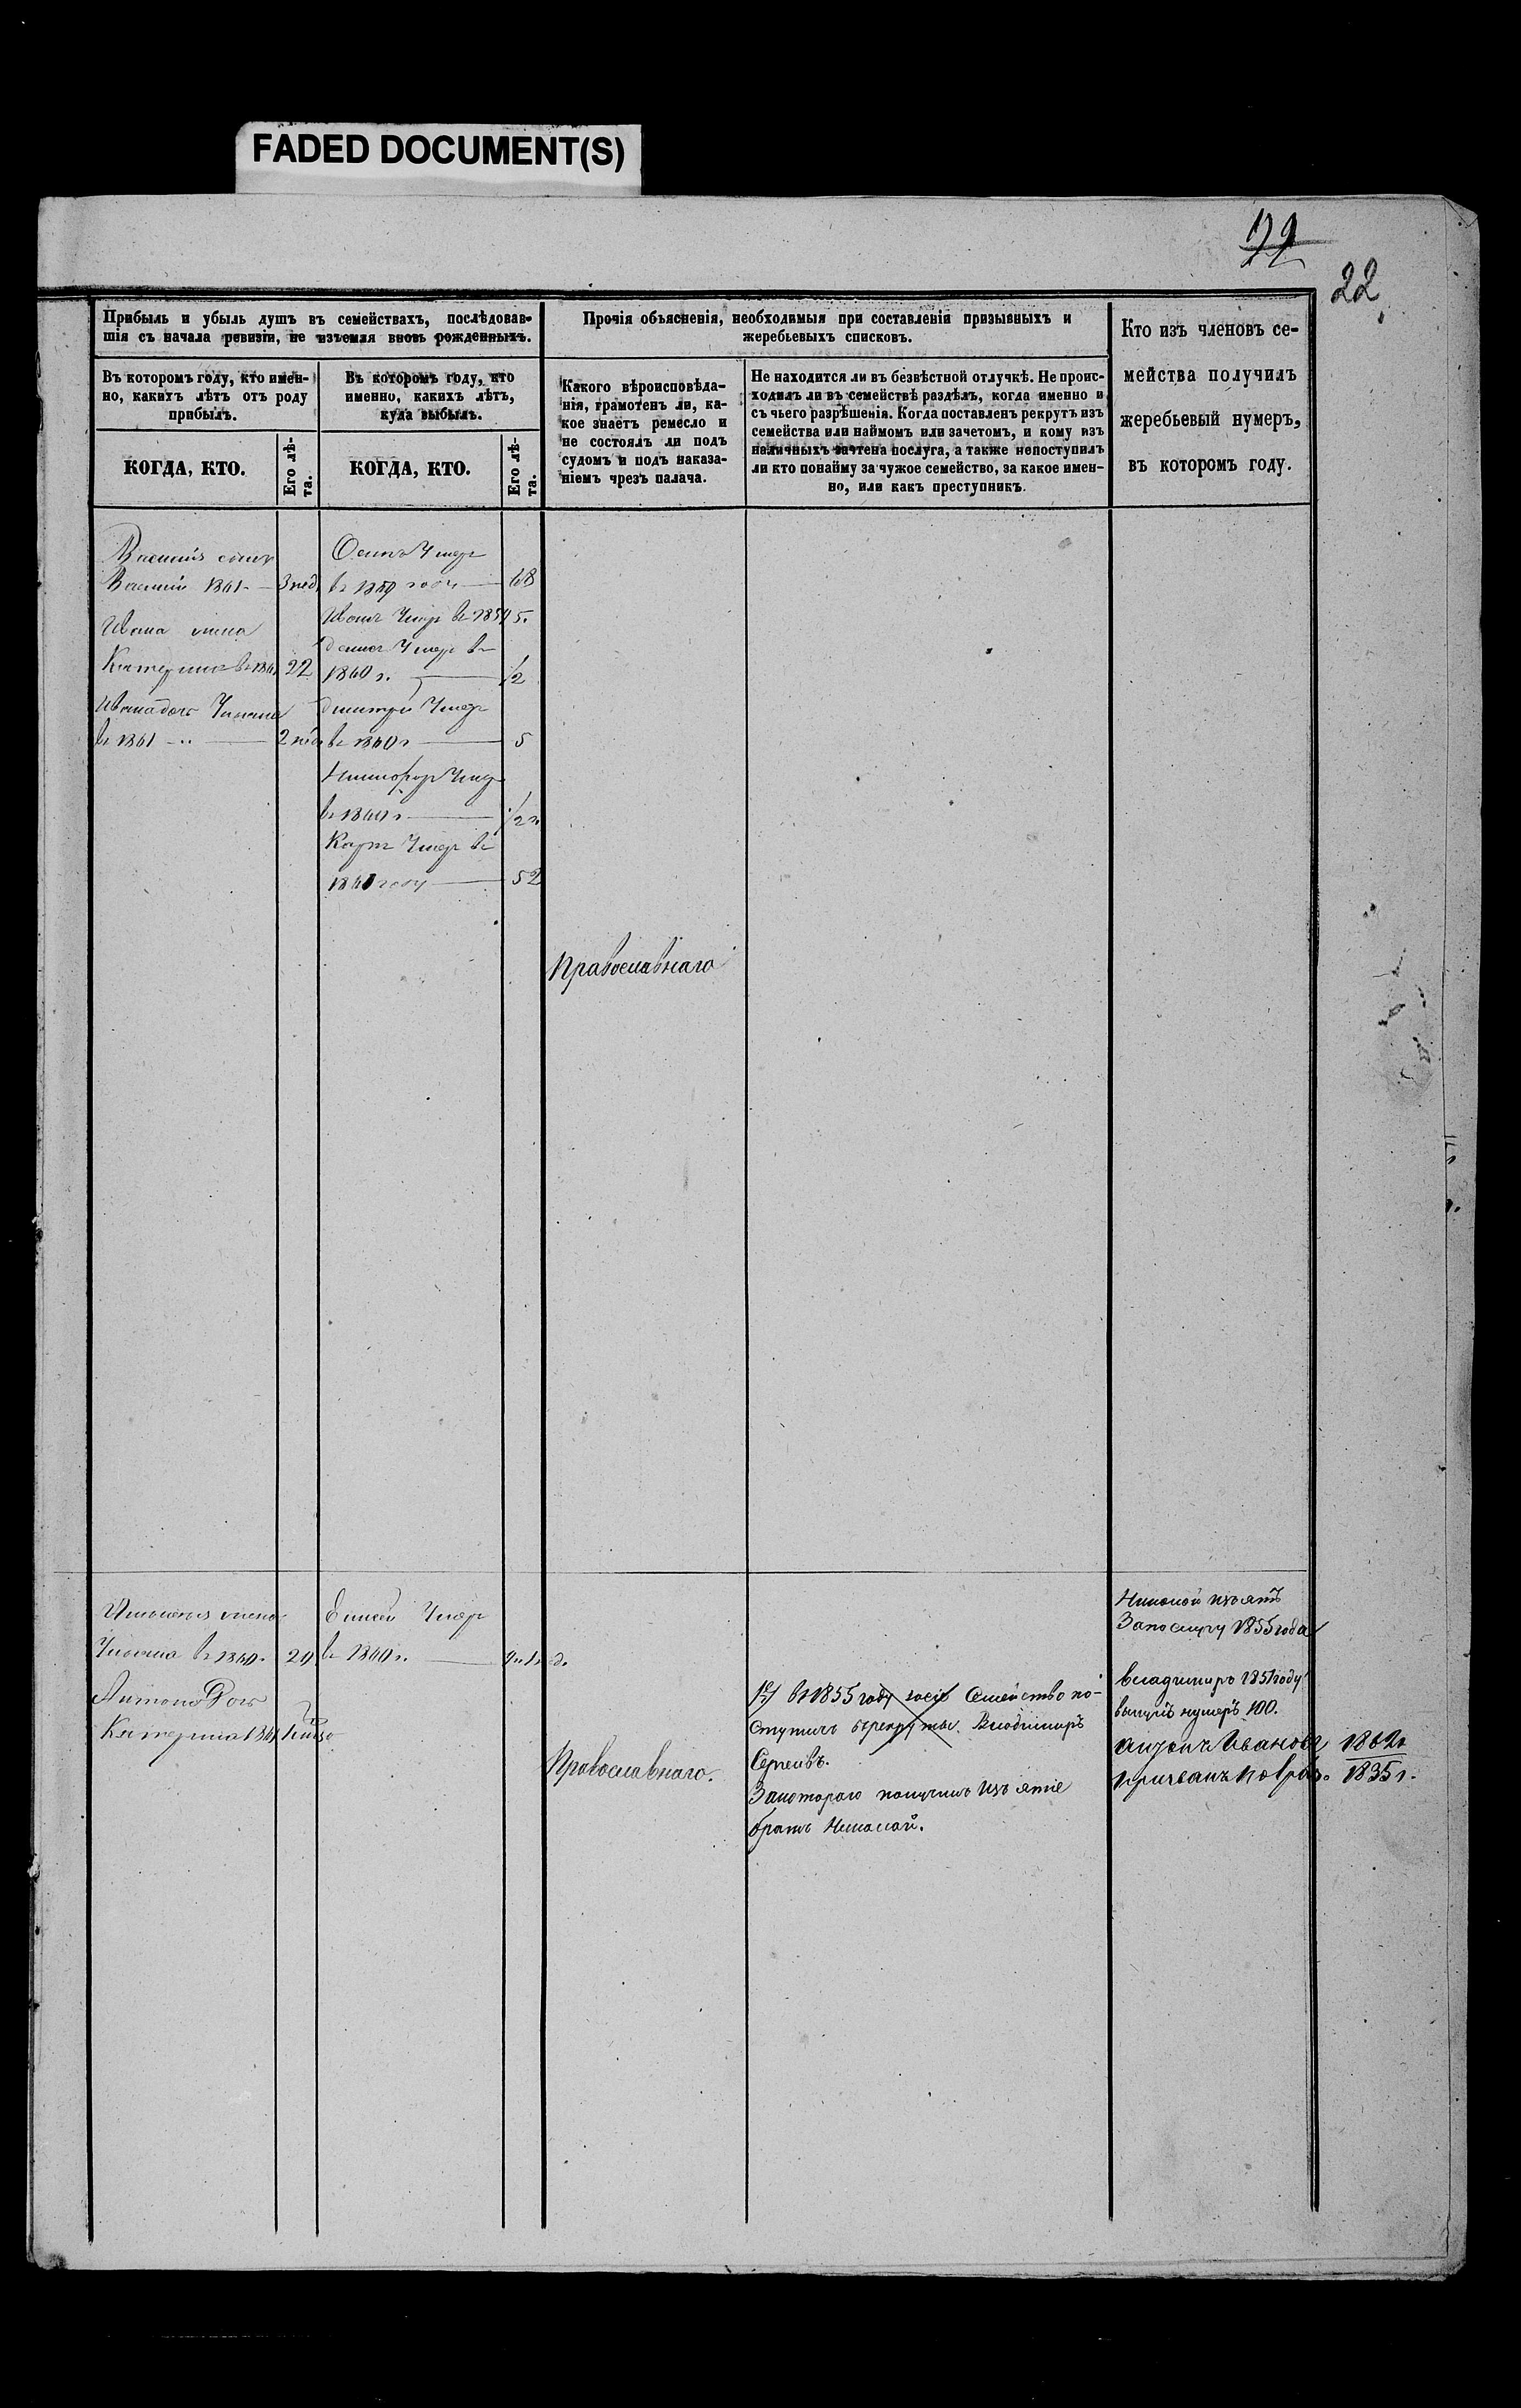 FADED DOCUMENT(S)
22
Прибыль и убыль душъ въ семействахъ, послѣдовав-
шія съ начала ревизіи, не изъемля вновь рожденныхъ.
Прочія объясненія, необходимыя при составленіи призывныхъ и
жеребьевыхъ списковъ.
Кто изъ членовъ се-
мейства получилъ
жеребьевый нумеръ,
въ которомъ году.
Въ которомъ году, кто имен-
но, какихъ лѣтъ отъ роду
прибылъ.
Въ которомъ году, кто
именно, какихъ лѣтъ,
куда выбылъ.
Какого вѣроисповѣда-
нія, грамотенъ ли, ка-
кое знаетъ ремесло и
не состоялъ ли подъ
судомъ и подъ наказа-
ніемъ чрезъ палача.
Не находится ли въ безвѣстной отлучкѣ. Не проис-
ходилъ ли въ семействѣ раздѣлъ, когда именно и
съ чьего разрѣшенія. Когда поставленъ рекрутъ изъ
семейства или наймомъ или зачетомъ, и кому изъ
наличныхъ зачтена послуга, а также непоступилъ
ли кто понайму за чужое семейство, за какое имен-
но, или какъ преступникъ.
КОГДА, КТО.
Его лѣ-
та.
КОГДА, КТО.
Его лѣ-
та.
Василія сынъ
Василій 1861 — 3 нед.
Ивана жена
Катерина въ 1861 22
Ивана дочь Ульяна
въ 1861 — 2 нед.
Осипъ Умеръ
въ 1859 году — 68
Иванъ Умеръ въ 1859 5.
Умеръ въ
1860 г. — 1/2
Дмитрій Умеръ
въ 1860 г — 5
Никифоръ Умер
въ 1860 г — 1/2 г.
Карпъ Умеръ въ
1861 году — 52
Православнаго
жена
Ульяна въ 1860 г. 20
Антона Дочь
Катерина 1861
Елисей Умеръ
въ 1860 г. —
Православнаго.
въ 1855 году Семейство по-
ступилъ Владимиръ
Сергеевъ.
Закотораго получилъ Изъятіе
братъ Николай.
Николай изъятъ
Запослугу 1855 года
Владимиръ 1851 году
вынулъ нумеръ 100.
Антонъ Ивановъ 1862 г.
призванъ 1835 г.